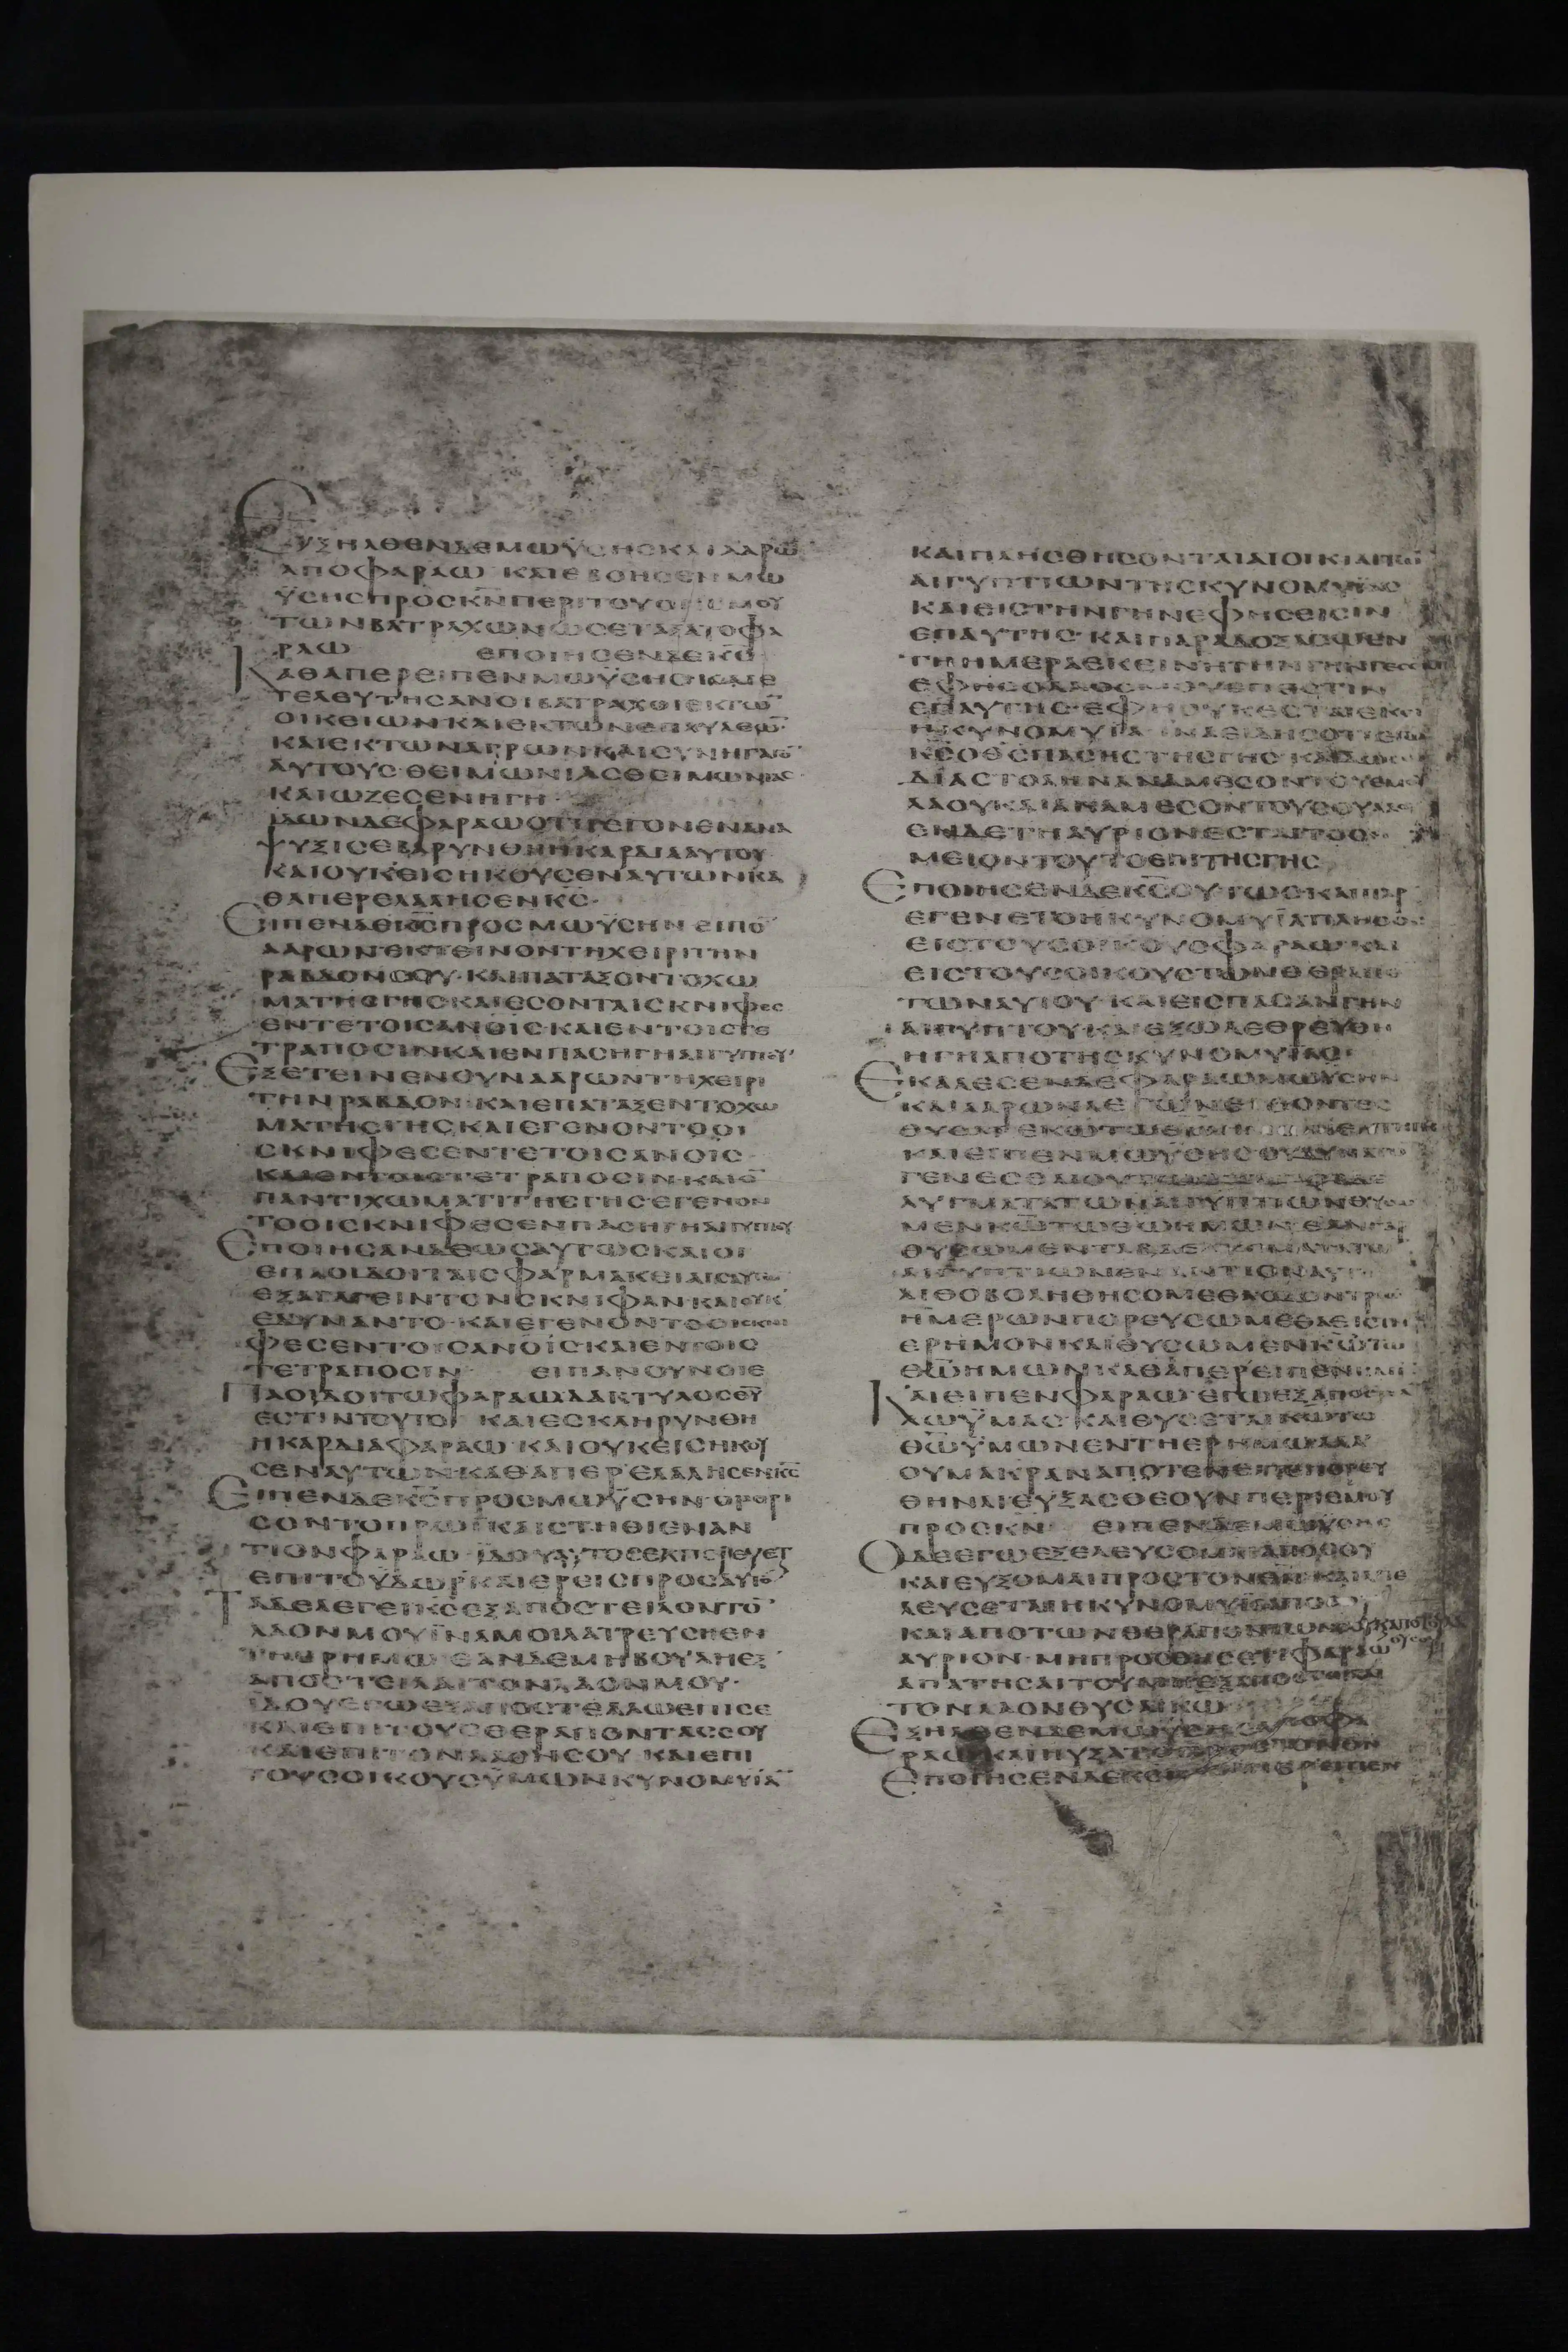 Εξηλθεν δε μωϋσης και ααρω̅
απο φαραω · και εβοησεν μω
ϋσης προς κ̅ν̅ περι του ορισμου
των βατραχων ως εταξατο φα
ραω εποιησεν δε κ̅ς̅
Καθαπερ ειπεν μωϋσης και ε
τελευτησαν οι βατραχοι εκ τω̅
οικειων και εκ των επαυλεω̅·
και εκ των αγρων και συνηγαγο̅
αυτους θειμωνιας θειμωνιας·
και ωζεσεν η γη·
ϊδων δε φαραω οτι γεγονεν ανα
ψυξις εβαρυνθη η καρδια αυτου
και ουκ εισηκουσεν αυτων κα
θαπερ ελαλησεν κ̅ς̅·
Ειπεν δε κ̅ς̅ προς μωϋσην ειπο̅
ααρων εκτεινον τη χειρι την
ραβδον σου· και παταξον το χω
μα της γης και εσονται σκνιφες
εν τε τοις αν̅ο̅ις και εν τοις τε
τραποσιν και εν παση γη αιγυπτου·
Εξετεινεν ουν ααρων τη χειρι
την ραβδον· και επαταξεν το χω
μα της γης και εγενοντο οι
σκνιφες εν τε τοις αν̅ο̅ις
και εν τοις τετραποσιν και ε̅
παντι χωματι της γης εγενον
το οι σκνιφες εν παση γη αιγυπτου
Εποιησαν δε ωσαυτως και οι
επαοιδοι ταις φαρμακειαις αυτων
εξαγαγειν τον σκνιφαν· και ουκ
εδυναντο· και εγενοντο οι σκνι
φες εν τοις αν̅ο̅ις και εν τοις
τετραποσιν ειπαν ουν οι ε
Παοιδοι τω φαραω δακτυλος θ̅υ̅
εστιν τουτο· και εσκληρυνθη
η καρδια φαραω· και ουκ εισηκου
σεν αυτων· καθαπερ ελαλησεν κ̅ς̅
Ειπεν δε κ̅ς̅ προς μωϋσην· ορθρι
σον το πρωϊ και στηθι εναν
τιον φαραω· ϊδου αυτος εκπορευσετ
επι το ϋδωρ· και ερεις προς αυτο̅
Ταδε λεγει κ̅ς̅ εξαποστειλον το̅
λαον μου ϊνα μοι λατρευσ εν
τη ερημω εαν δε μη βουλη εξ
αποστειλαι τον λαον μου·
ϊδου εγω εξαποστελλω επι σε
και επι τους θεραποντας σου
και επι τον λαον σου και επι
τους οικους ϋμων κυνομυϊα̅
και πλησθησονται αι οικιαι τω̅
αιγυπτιων της κυνομυϊας
και εις την γην εφ ης εισιν
επ αυτης· και παραδοξασω εν
τη ημερα εκεινη την γην γεσεμ
εφ ης ο λαος μου επεστιν
επ αυτης· εφ ης ουκ εσται εκει
η κυνομυϊα· ϊνα ειδης οτι εγω
κ̅ς̅ ο θ̅ς̅ πασης της γης· και δωσω
διαστολην ανα μεσον του εμου
λαου και ανα μεσον του σου λαου
εν δε τη αυριον εσται το ση
μειον τουτο επι της γης
Εποιησεν δε κ̅ς̅ ουτως και παρ
εγενετο η κυνομυϊα πληθος
εις τους οικους φαραω και
εις τους οικους των θεραπο
των αυτου· και εις πασαν γην
αιγυπτου· και εξωλεθρευθη
η γη απο της κυνομυϊας·
Εκαλεσεν δε φαραω μωϋσην
και ααρων λεγων ελθοντες
θυσατε κ̅ω̅ τω θ̅ω̅
και ειπεν μωϋσης ου δυνατον
γενεσθαι ουτως
αυγματα των αιγυπτιων θυσο
μεν κ̅ω̅ τω θ̅ω̅ ημων· εαν γαρ
θυσωμεν τα βδελυγματα των
αιγυπτιων εναντιον αυτων
λιθοβοληθησομεθα· οδον τριων
ημερων πορευσωμεθα εις την
ερημον· και θυσωμεν κ̅ω̅ τω
θ̅ω̅ ημων· καθαπερ ειπεν
Και ειπεν φαραω· εγω εξαποστελ
λω ϋμας· και θυσεται κ̅ω̅ τω
θ̅ω̅ ϋμων εν τη ερημω αλλ
ου μακραν αποτενειτε πορευ
θηναι ευξασθε ουν περι εμου
προς κ̅ν̅ ειπεν δε μωϋσης
Οδε εγω εξελευσομαι απο σου
και ευξομαι προς τον θ̅ν̅· και απε
λευσεται η κυνομυϊα απο σου
και απο των θεραποντων σου και απο του λαου
αυριον· μη προσθησετι φαραω
απατησαι του μη εξαποστειλαι
τον λαον θυσαι κ̅ω̅
Εξηλθεν δε μωϋσης απο φα
ραω και ηυξατο προς τον θ̅ν̅
Εποιησεν δε κ̅ς̅ καθαπερ ειπεν